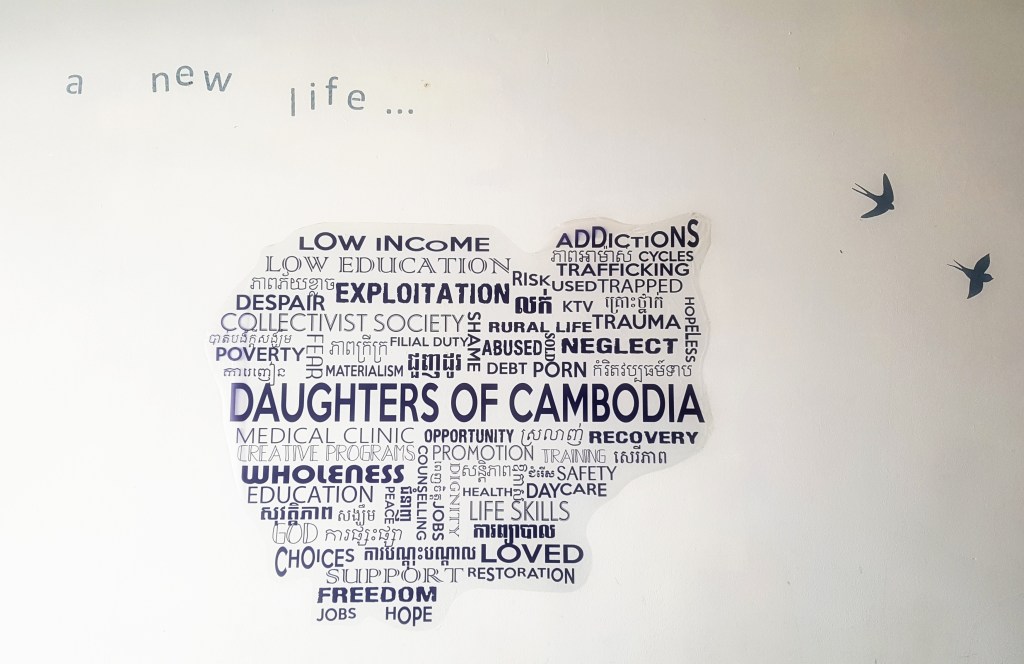 a new life ...
LOW INCOME
ADDICTIONS
LOW EDUCATION
ភាពអាម៉ាស់ CYCLES
TRAFFICKING
ភាពភ័យខ្លាច
EXPLOITATION
RISK
USED TRAPPED
DESPAIR
លក់
KTV
គ្រោះថ្នាក់
HOPELESS
COLLECTIVIST SOCIETY
SHAME
RURAL LIFE
TRAUMA
FEAR
FILIAL DUTY
ABUSED
SOLD
NEGLECT
POVERTY
ភាពក្រីក្រ
MATERIALISM
ជួញដូរ
DEBT PORN
កំរិតវប្បធម៍ទាប
DAUGHTERS OF CAMBODIA
MEDICAL CLINIC
OPPORTUNITY
ស្រលាញ់
RECOVERY
CREATIVE PROGRAMS
COUNSELLING
PROMOTION
TRAINING
សេរីភាព
WHOLENESS
DIGNITY
សន្តិភាព
ជំរើស
SAFETY
EDUCATION
PEACE
JOBS
HEALTH
DAYCARE
សុវត្ថិភាព
សង្ឃឹម
LIFE SKILLS
GOD
ការផ្សះផ្សា
ការព្យាបាល
CHOICES
ការបណ្តុះបណ្តាល
LOVED
SUPPORT
RESTORATION
FREEDOM
JOBS
HOPE